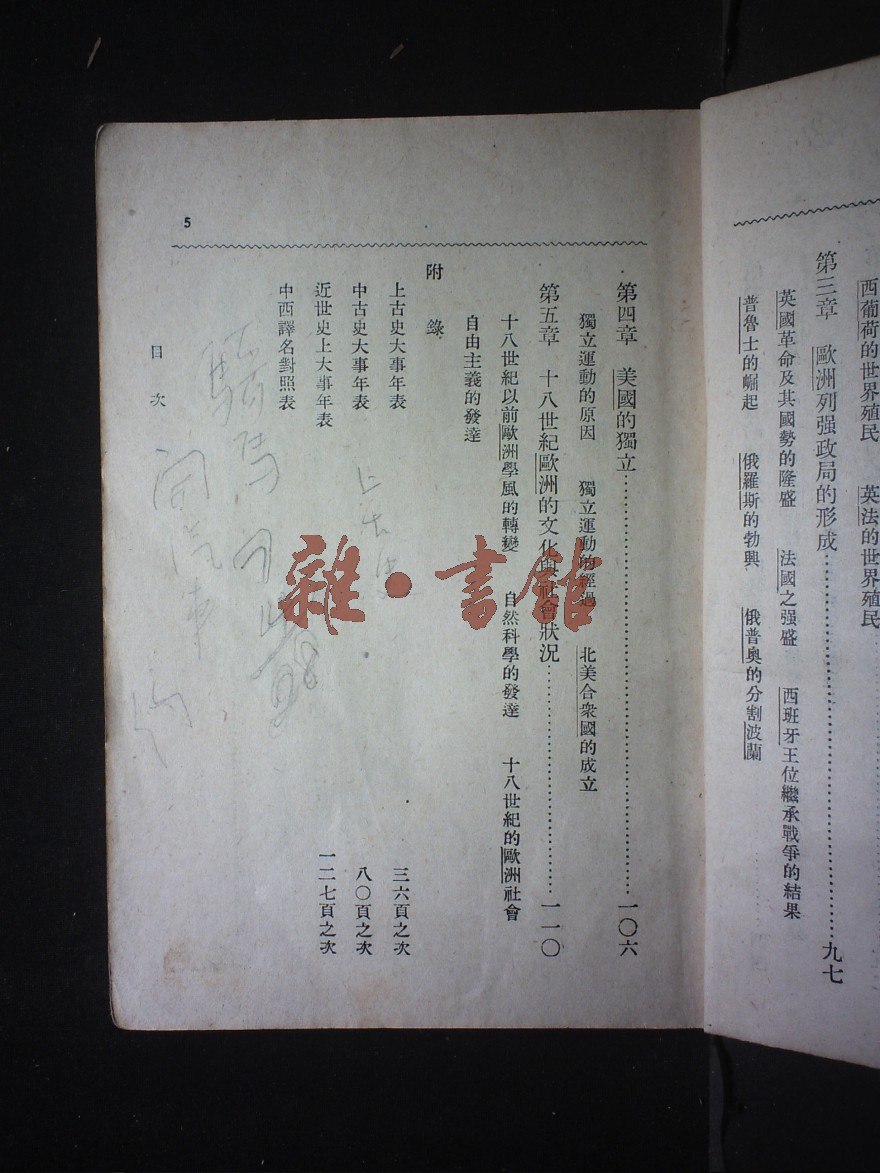 西葡荷的世界殖民　英法的世界殖民
第三章　歐洲列强政局的形成…………………………九七
英國革命及其國勢的隆盛　法國之强盛　西班牙王位繼承戰爭的結果
普魯士的崛起　俄羅斯的勃興　俄普奧的分割波蘭
第四章　美國的獨立…………………………一〇六
獨立運動的原因　獨立運動的經過　北美合衆國的成立
第五章　十八世紀歐洲的文化與社會狀况…………………………一一〇
十八世紀以前歐洲學風的轉變　自然科學的發達　十八世紀的歐洲社會
自由主義的發達
附錄
上古史大事年表　三六頁之次
中古史大事年表　八〇頁之次
近世史上大事年表　一二七頁之次
中西譯名對照表
目次
5
上古史
開汽車
雜·書館